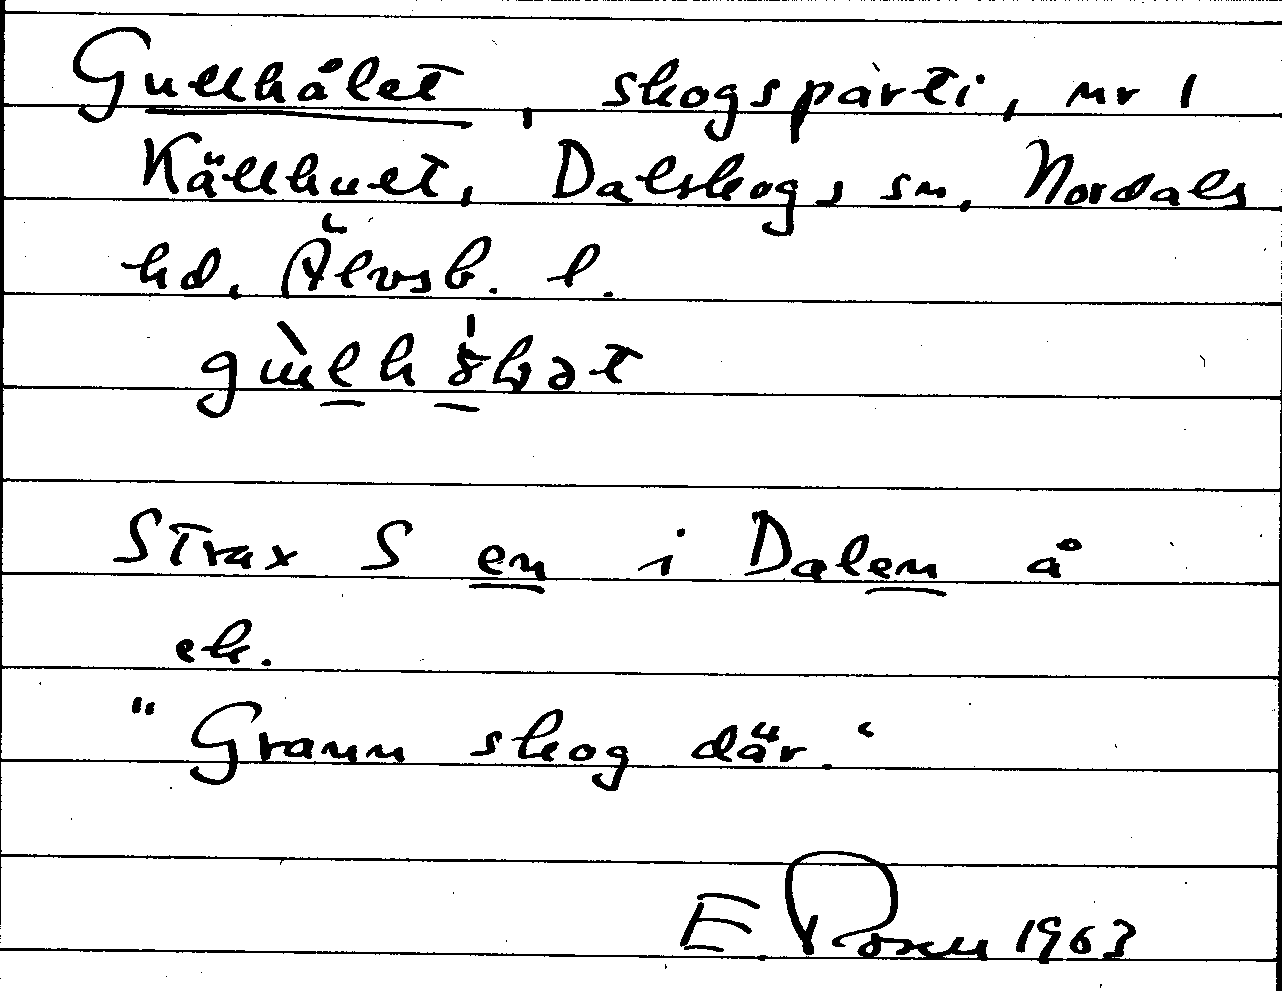 Gullhålet, skogsparti, nr 1
Källhult, Dalskogs sn, Nordals
hd. Älvsb. l.

Strax S en i Dalen å
ek.
"Grann skog där."
E. Rosell 1963